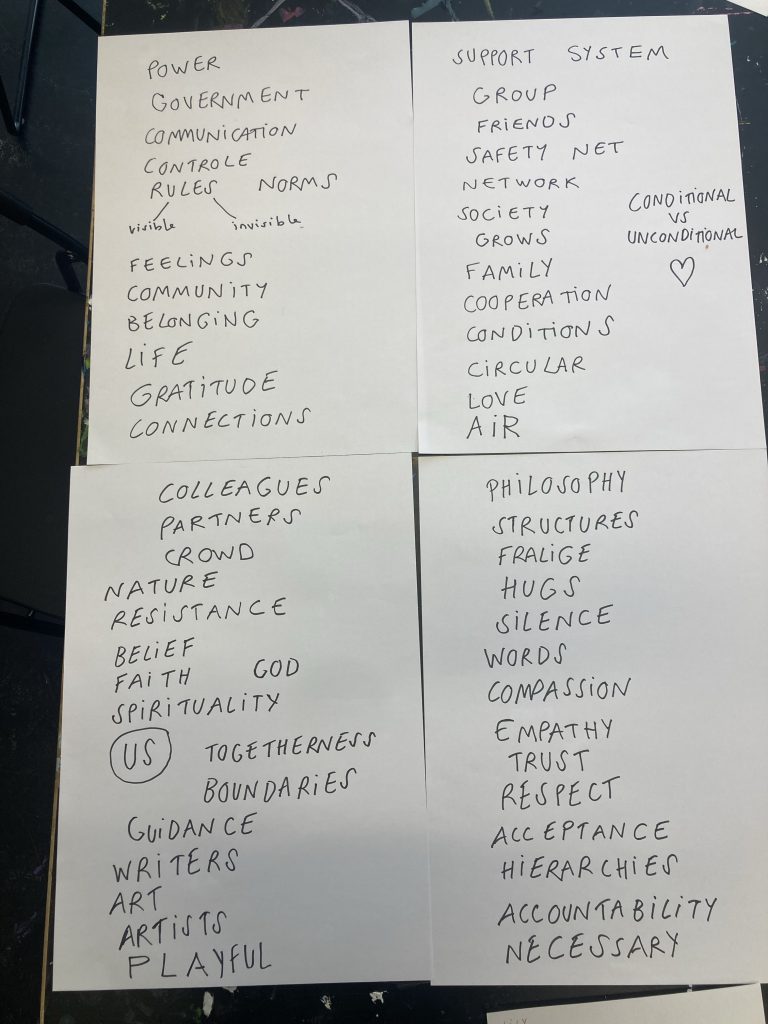 POWER
GOVERNMENT
COMMUNICATION
CONTROLE
RULES NORMS
visible invisible
FEELINGS
COMMUNITY
BELONGING
LIFE
GRATITUDE
CONNECTIONS
SUPPORT SYSTEM
GROUP
FRIENDS
SAFETY NET
NETWORK
SOCIETY
GROWS
FAMILY
COOPERATION
CONDITIONS
CIRCULAR
LOVE
AIR
CONDITIONAL
VS
UNCONDITIONAL
COLLEAGUES
PARTNERS
CROWD
NATURE
RESISTANCE
BELIEF
FAITH GOD
SPIRITUALITY
US TOGETHERNESS
BOUNDARIES
GUIDANCE
WRITERS
ART
ARTISTS
PLAYFUL
PHILOSOPHY
STRUCTURES
FRALIGE
HUGS
SILENCE
WORDS
COMPASSION
EMPATHY
TRUST
RESPECT
ACCEPTANCE
HIERARCHIES
ACCOUNTABILITY
NECESSARY